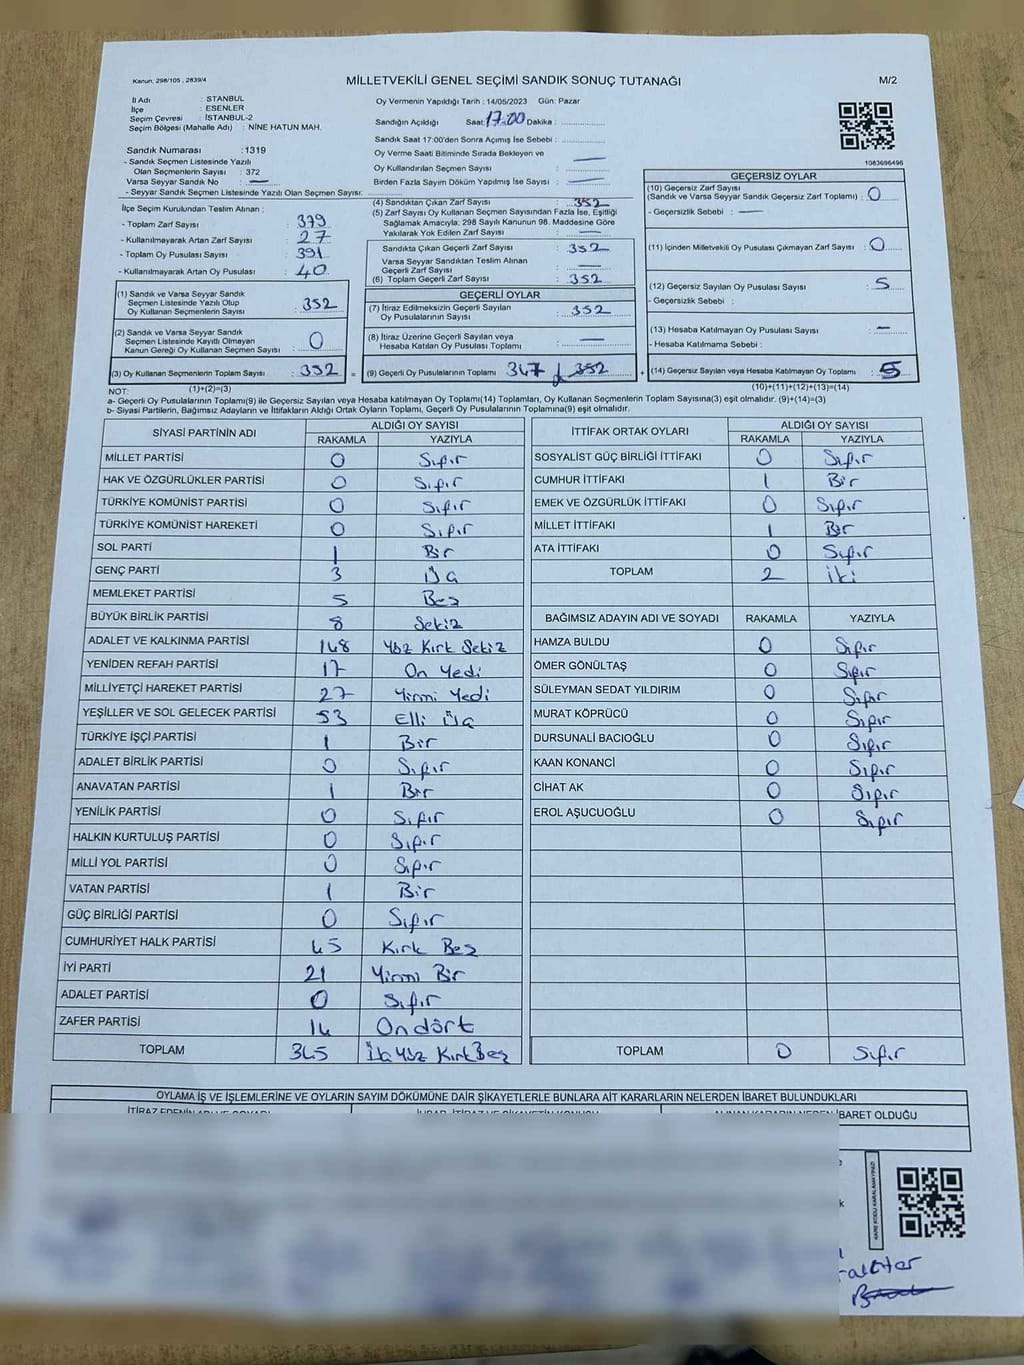 Kanun, 298/105 , 2839/4
MİLLETVEKİLİ GENEL SEÇİMİ SANDIK SONUÇ TUTANAĞI
M/2
İl Adı : STANBUL
İlçe : ESENLER
Seçim Çevresi : İSTANBUL-2
Seçim Bölgesi (Mahalle Adı) : NİNE HATUN MAH.
Sandık Numarası : 1319
- Sandık Seçmen Listesinde Yazılı
Olan Seçmenlerin Sayısı : 372
Varsa Seyyar Sandık No : —
- Seyyar Sandık Seçmen Listesinde Yazılı Olan Seçmen Sayısı:
Oy Vermenin Yapıldığı Tarih : 14/05/2023 Gün: Pazar
Sandığın Açıldığı Saat: 17.00 Dakika :
Sandık Saat 17:00'den Sonra Açımış İse Sebebi :
Oy Verme Saati Bitiminde Sırada Bekleyen ve
Oy Kullandırılan Seçmen Sayısı : —
Birden Fazla Sayım Döküm Yapılmış İse Sayısı : —
1083696496
İlçe Seçim Kurulundan Teslim Alınan :
- Toplam Zarf Sayısı : 379
- Kullanılmayarak Artan Zarf Sayısı : 27
- Toplam Oy Pusulası Sayısı : 391
- Kullanılmayarak Artan Oy Pusulası : 40
(1) Sandık ve Varsa Seyyar Sandık
Seçmen Listesinde Yazılı Olup
Oy Kullanan Seçmenlerin Sayısı : 352
(2) Sandık ve Varsa Seyyar Sandık
Seçmen Listesinde Kayıtlı Olmayan
Kanun Gereği Oy Kullanan Seçmen Sayısı : 0
(3) Oy Kullanan Seçmenlerin Toplam Sayısı : 352 =
(4) Sandıktan Çıkan Zarf Sayısı : 352
(5) Zarf Sayısı Oy Kullanan Seçmen Sayısından Fazla İse, Eşitliği
Sağlamak Amacıyla; 298 Sayılı Kanunun 98. Maddesine Göre
Yakılarak Yok Edilen Zarf Sayısı : —
Sandıkta Çıkan Geçerli Zarf Sayısı : 352
Varsa Seyyar Sandıktan Teslim Alınan
Geçerli Zarf Sayısı : —
(6) Toplam Geçerli Zarf Sayısı : 352
GEÇERLİ OYLAR
(7) İtiraz Edilmeksizin Geçerli Sayılan
Oy Pusulalarının Sayısı : 352
(8) İtiraz Üzerine Geçerli Sayılan veya
Hesaba Katılan Oy Pusulası Toplamı : —
(9) Geçerli Oy Pusulalarının Toplamı : 347 352 +
GEÇERSİZ OYLAR
(10) Geçersiz Zarf Sayısı
(Sandık ve Varsa Seyyar Sandık Geçersiz Zarf Toplamı) : 0
- Geçersizlik Sebebi : —
(11) İçinden Milletvekili Oy Pusulası Çıkmayan Zarf Sayısı : 0
(12) Geçersiz Sayılan Oy Pusulası Sayısı : 5
- Geçersizlik Sebebi :
(13) Hesaba Katılmayan Oy Pusulası Sayısı : —
- Hesaba Katılmama Sebebi :
(14) Geçersiz Sayılan veya Hesaba Katılmayan Oy Toplamı : 5
NOT: (1)+(2)=(3) (10)+(11)+(12)+(13)=(14)
a- Geçerli Oy Pusulalarının Toplamı(9) ile Geçersiz Sayılan veya Hesaba Katılmayan Oy Toplamı(14) Toplamları, Oy Kullanan Seçmenlerin Toplam Sayısına(3) eşit olmalıdır. (9)+(14)=(3)
b- Siyasi Partilerin, Bağımsız Adayların ve İttifakların Aldığı Ortak Oyların Toplamı, Geçerli Oy Pusulalarının Toplamına(9) eşit olmalıdır.
SİYASİ PARTİNİN ADI ALDIĞI OY SAYISI
RAKAMLA YAZIYLA
MİLLET PARTİSİ 0 Sıfır
HAK VE ÖZGÜRLÜKLER PARTİSİ 0 Sıfır
TÜRKİYE KOMÜNİST PARTİSİ 0 Sıfır
TÜRKİYE KOMÜNİST HAREKETİ 0 Sıfır
SOL PARTİ 1 Bir
GENÇ PARTİ 3 Üç
MEMLEKET PARTİSİ 5 Beş
BÜYÜK BİRLİK PARTİSİ 8 Sekiz
ADALET VE KALKINMA PARTİSİ 148 Yüz Kırk Sekiz
YENİDEN REFAH PARTİSİ 17 On Yedi
MİLLİYETÇİ HAREKET PARTİSİ 27 Yirmi Yedi
YEŞİLLER VE SOL GELECEK PARTİSİ 53 Elli Üç
TÜRKİYE İŞÇİ PARTİSİ 1 Bir
ADALET BİRLİK PARTİSİ 0 Sıfır
ANAVATAN PARTİSİ 1 Bir
YENİLİK PARTİSİ 0 Sıfır
HALKIN KURTULUŞ PARTİSİ 0 Sıfır
MİLLİ YOL PARTİSİ 0 Sıfır
VATAN PARTİSİ 1 Bir
GÜÇ BİRLİĞİ PARTİSİ 0 Sıfır
CUMHURİYET HALK PARTİSİ 45 Kırk Beş
İYİ PARTİ 21 Yirmi Bir
ADALET PARTİSİ 0 Sıfır
ZAFER PARTİSİ 14 On dört
TOPLAM 345 Üç Yüz Kırk Beş
İTTİFAK ORTAK OYLARI ALDIĞI OY SAYISI
RAKAMLA YAZIYLA
SOSYALİST GÜÇ BİRLİĞİ İTTİFAKI 0 Sıfır
CUMHUR İTTİFAKI 1 Bir
EMEK VE ÖZGÜRLÜK İTTİFAKI 0 Sıfır
MİLLET İTTİFAKI 1 Bir
ATA İTTİFAKI 0 Sıfır
TOPLAM 2 İki
BAĞIMSIZ ADAYIN ADI VE SOYADI RAKAMLA YAZIYLA
HAMZA BULDU 0 Sıfır
ÖMER GÖNÜLTAŞ 0 Sıfır
SÜLEYMAN SEDAT YILDIRIM 0 Sıfır
MURAT KÖPRÜCÜ 0 Sıfır
DURSUNALİ BACIOĞLU 0 Sıfır
KAAN KONANCİ 0 Sıfır
CİHAT AK 0 Sıfır
EROL AŞUCUOĞLU 0 Sıfır
TOPLAM 0 Sıfır
OYLAMA İŞ VE İŞLEMLERİNE VE OYLARIN SAYIM DÖKÜMÜNE DAİR ŞİKAYETLERLE BUNLARA AİT KARARLARIN NELERDEN İBARET BULUNDUKLARI
İBARET OLDUĞU
KARE KODU KARALAMAYINIZ!